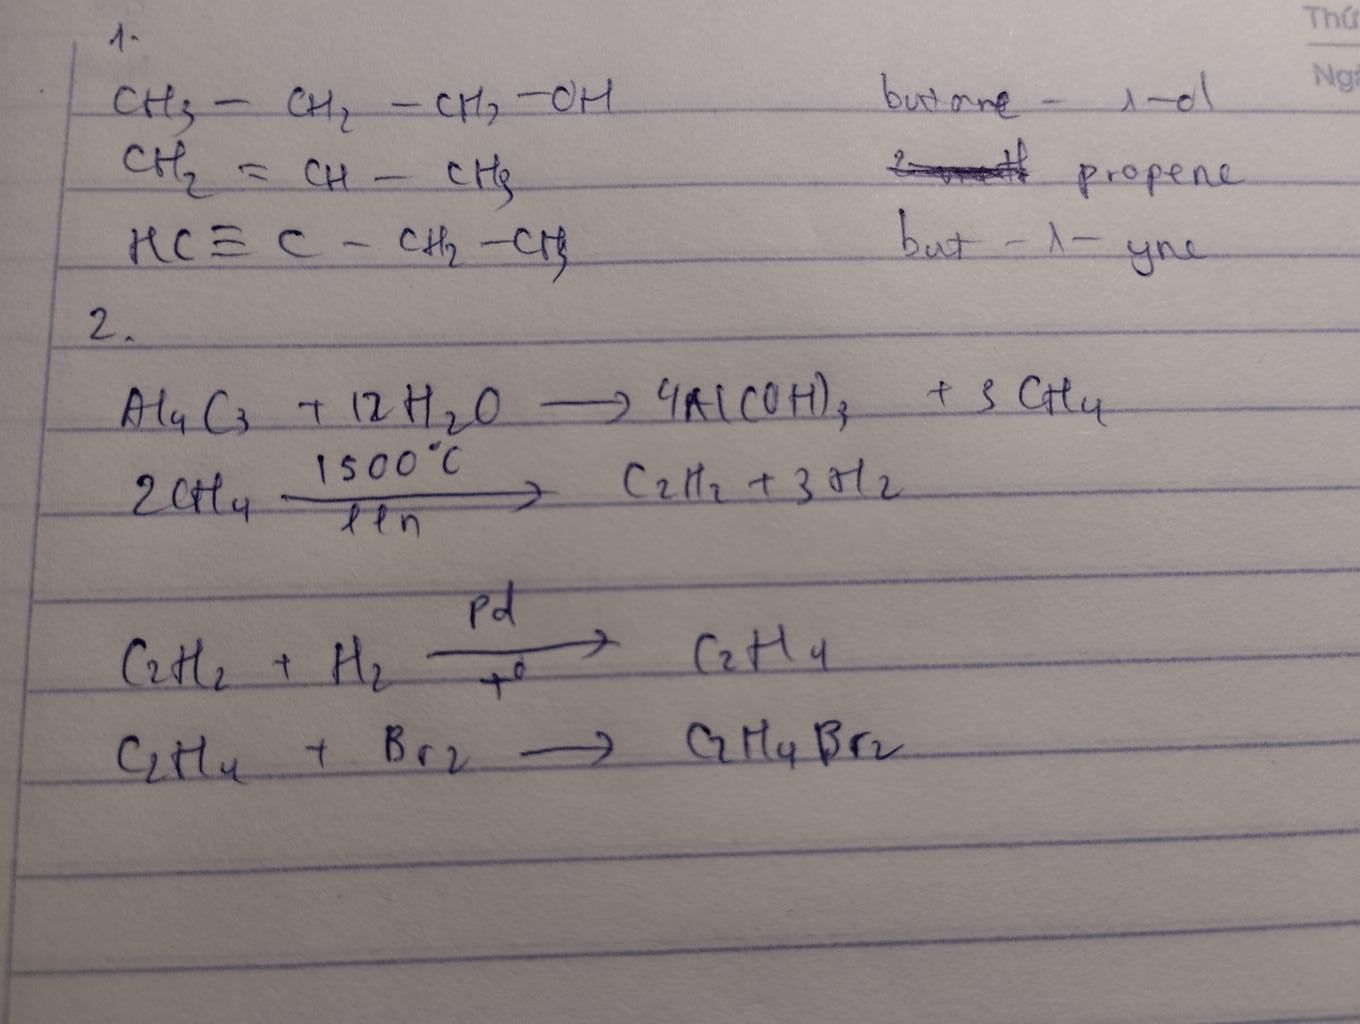 Thứ
Ngà
1.
CH₃ – CH₂ – CH₂ – OH butane – 1-ol
CH₂ = CH – CH₃ propene
HC ≡ C – CH₂ – CH₃ but – 1 – yne
2.
Al₄C₃ + 12 H₂O → 4Al(OH)₃ + 3 CH₄
2CH₄ 1500°C → lln C₂H₂ + 3H₂
C₂H₂ + H₂ Pd → t° C₂H₄
C₂H₄ + Br₂ → C₂H₄Br₂